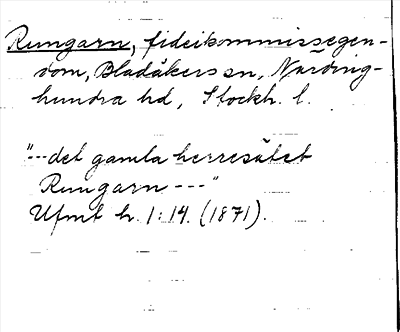 Rungarn, fideikommissegen-
dom, Bladåkers sn, Närding-
hundra hd, Stockh. l.
"---det gamla herresätet
Rungarn ---"
Ufmt h. 1:14. (1871).